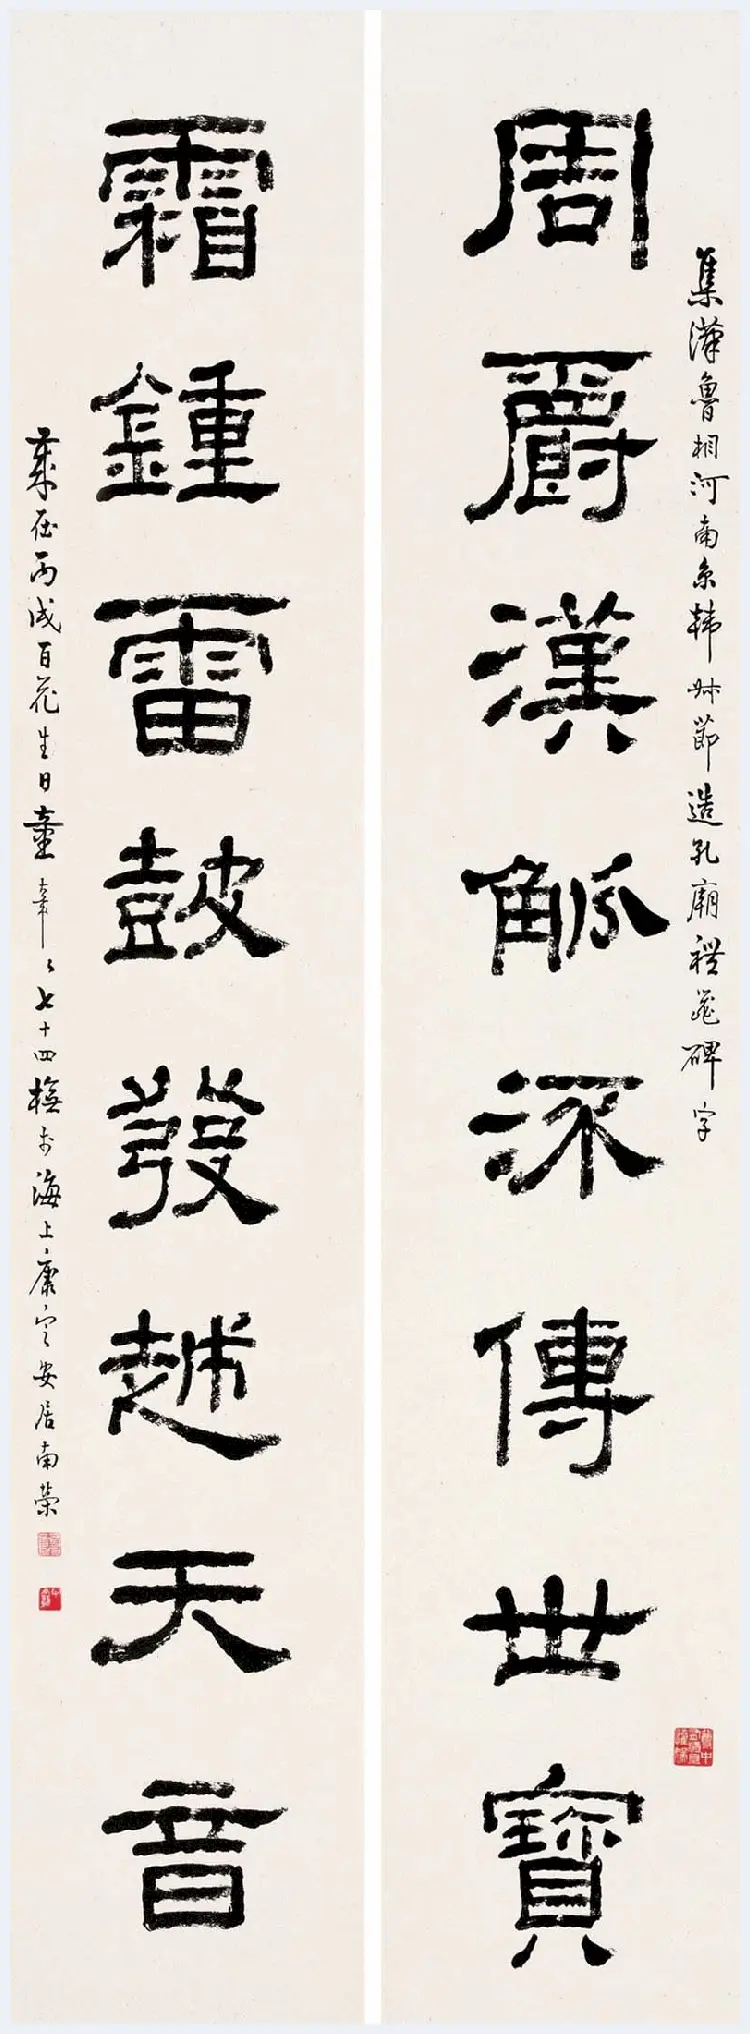 集漢魯相河南京韓叔節造孔廟禮器碑字
周爵漢觚流傳世寶
霜鍾雷鼓發越天音
歲在丙戌百花生日童大年〻七十四橅於海上康寧安居南榮